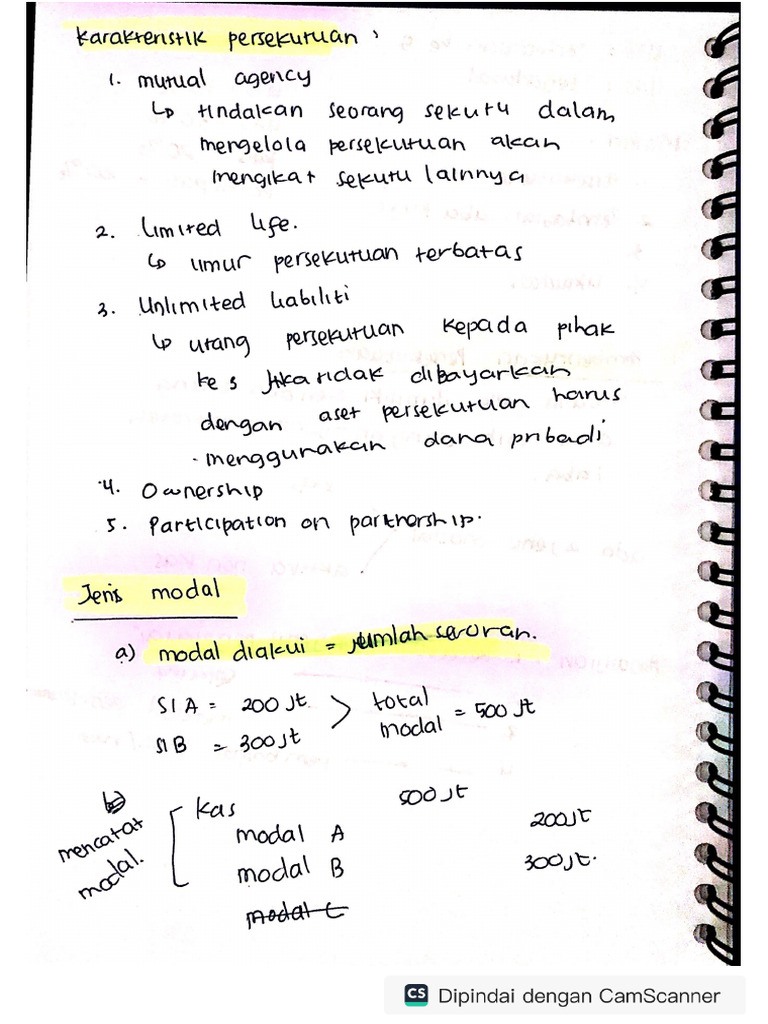 Karakteristik persekutuan,
1. mutual agency
↳ tindakan seorang sekutu dalam
mengelola persekutuan akan
mengikat sekutu lainnya
2. Limited life.
↳ umur persekutuan terbatas
3. Unlimited liabiliti
↳ utang persekutuan kepada pihak
ke 3 jika tidak dibayarkan
dengan aset persekutuan harus
menggunakan dana pribadi
4. Ownership
5. Participation on partnership.
Jenis modal
a) modal diakui = jumlah setoran.
SI A = 200 Jt.
SI B = 300 Jt
> total modal = 500 Jt
↳ mencatat modal.
Kas 500 Jt
modal A 200 Jt
modal B 300 Jt.
modal C
CS Dipindai dengan CamScanner